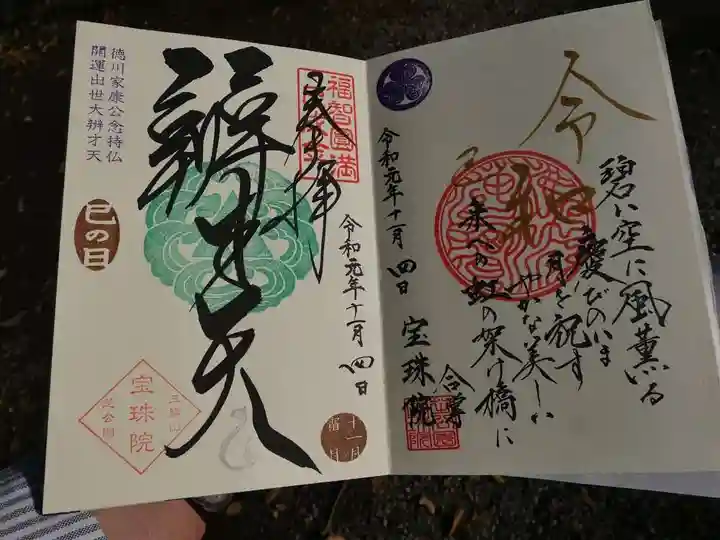 令和
碧い空に風薫いる
慶びのいま
月を祝す
やかな美しい
未来への虹の架け橋に
合尊
宝珠院
令和元年十一月四日
福智圓満
奉拝
令和元年十一月四日
十一月
霜月
辨才天
徳川家康公念持仏
開運出世大辨才天
巳の日
三縁山
宝珠院
芝公園